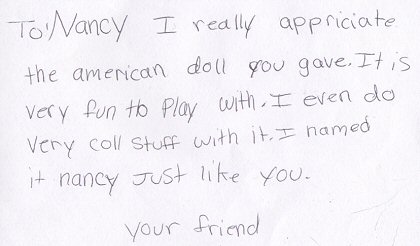 To: Nancy I really appriciate
the american doll you gave. It is
very fun to Play with. I even do
very coll stuff with it. I named
it nancy Just like you.
your friend